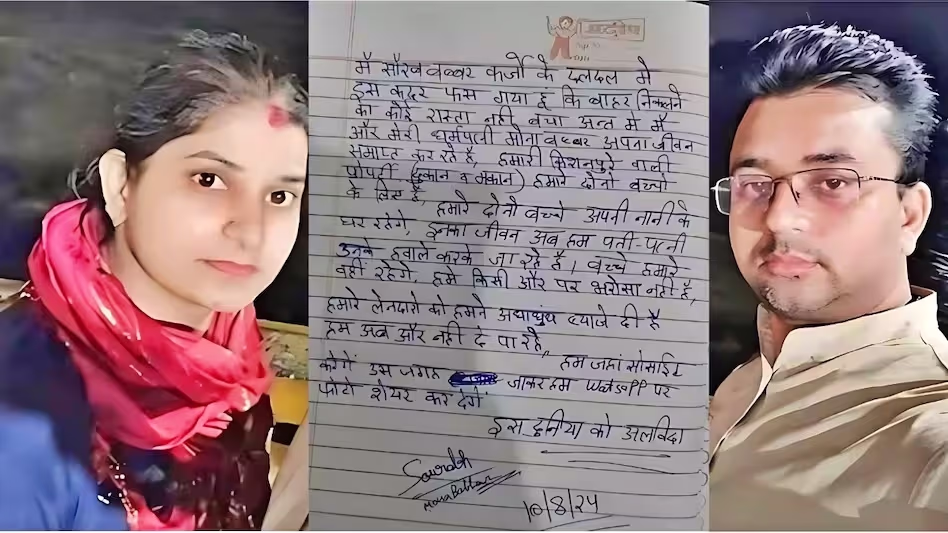 मै सौरव बब्बर कर्जो के दलदल मे
इस कदर फस गया हू कि बाहर निकलने
का कोई रास्ता नही बचा अन्त मे मै
और मेरी धर्मपत्नी मोना बब्बर अपना जीवन
समाप्त कर रहे है, हमारी किशनपुरे वाली
प्रोपर्टी (दुकान व मकान) हमारे दोनो बच्चो
के लिए है, हमारे दोनो बच्चे अपनी नानी के
घर रहेगे, इनका जीवन अब हम पती-पत्नी
उनके हवाले करके जा रहे है। बच्चे हमारे
वही रहेगे, हमे किसी और पर भरोसा नही है,
हमारे लेनदारो को हमने अंधाधुंध ब्याजे दी है
हम अब और नही दे पा रहे,, हम जहां सोसाईट
करेगें उस जगह जाकर हम Watsapp पर
फोटो शेयर कर देगें
इस दुनिया को अलविदा
Saurabh
Mona Babbar
10/8/24